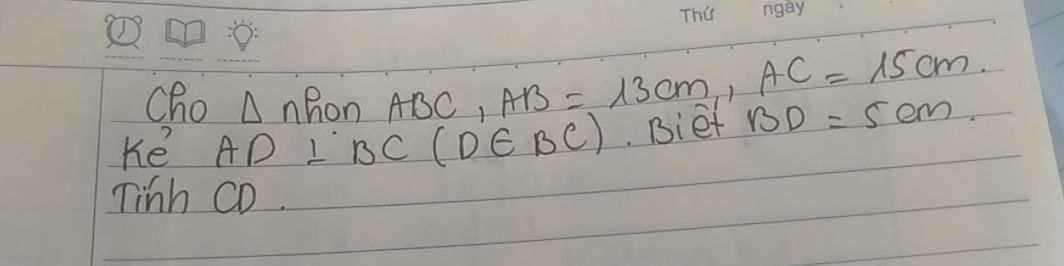 Thứ ngày
Cho Δ nhọn ABC, AB = 13cm, AC = 15cm.
Kẻ AD ⊥ BC (D ∈ BC). Biết BD = 5cm.
Tính CD.